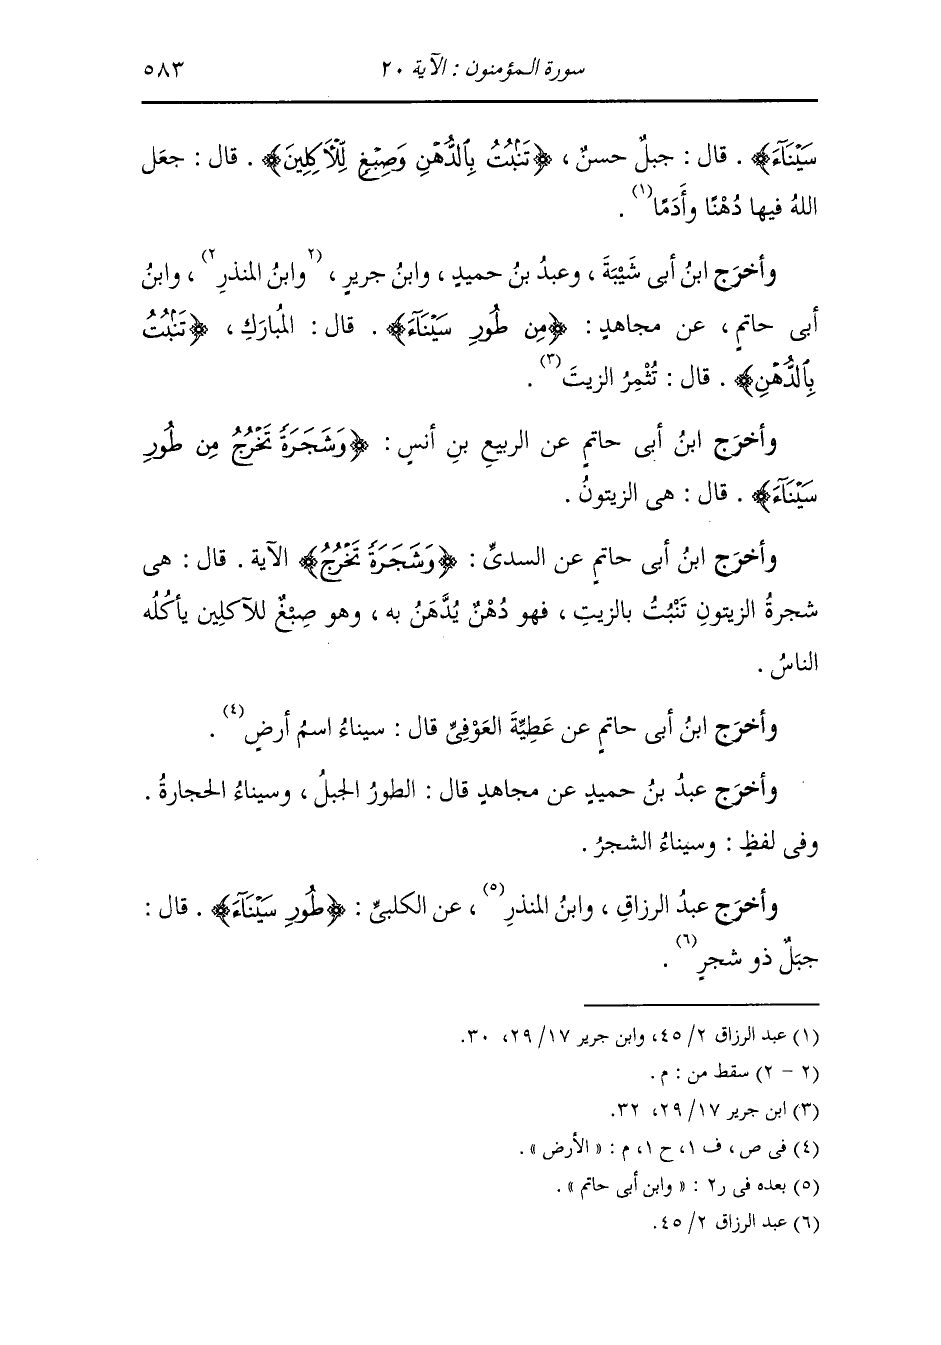 سورة المؤمنون : الآية ٢٠ ٥٨٣
سَيْنَآءَ﴾ . قال : جبلٌ حسنٌ ، ﴿تَنۢبُتُ بِٱلدُّهْنِ وَصِبْغٍ لِّلْآكِلِينَ﴾ . قال : جعَل
اللهُ فيها دُهْنًا وأَدَمًا(١) .
وأخرَج ابنُ أبى شَيْبَةَ ، وعبدُ بنُ حميدٍ ، وابنُ جريرٍ ، (٢وابنُ المنذرِ٢) ، وابنُ
أبى حاتمٍ ، عن مجاهدٍ : ﴿مِن طُورِ سَيْنَآءَ﴾ . قال : المُبارَكِ ، ﴿تَنۢبُتُ
بِٱلدُّهْنِ﴾ . قال : تُثْمِرُ الزيتَ(٣) .
وأخرَج ابنُ أبى حاتمٍ عن الربيعِ بنِ أنسٍ : ﴿وَشَجَرَةً تَخْرُجُ مِن طُورِ
سَيْنَآءَ﴾ . قال : هى الزيتونُ .
وأخرَج ابنُ أبى حاتمٍ عن السدىِّ : ﴿وَشَجَرَةً تَخْرُجُ﴾ الآية . قال : هى
شجرةُ الزيتونِ تَنْبُتُ بالزيتِ ، فهو دُهْنٌ يُدَّهَنُ به ، وهو صِبْغٌ للآكلِين يأكُلُه
الناسُ .
وأخرَج ابنُ أبى حاتمٍ عن عَطِيَّةَ العَوْفِىِّ قال : سيناءُ اسمُ أرضٍ(٤) .
وأخرَج عبدُ بنُ حميدٍ عن مجاهدٍ قال : الطورُ الجبلُ ، وسيناءُ الحجارةُ .
وفى لفظٍ : وسيناءُ الشجرُ .
وأخرَج عبدُ الرزاقِ ، وابنُ المنذرِ(٥) ، عن الكلبىِّ : ﴿طُورِ سَيْنَآءَ﴾ . قال :
جبَلٌ ذو شجرٍ(٦) .
(١) عبد الرزاق ٢/ ٤٥، وابن جرير ١٧/ ٢٩، ٣٠.
(٢ - ٢) سقط من : م .
(٣) ابن جرير ١٧/ ٢٩، ٣٢.
(٤) فى ص ، ف ١، ح ١، م : « الأرض » .
(٥) بعده فى ر٢ : « وابن أبى حاتم » .
(٦) عبد الرزاق ٢/ ٤٥.